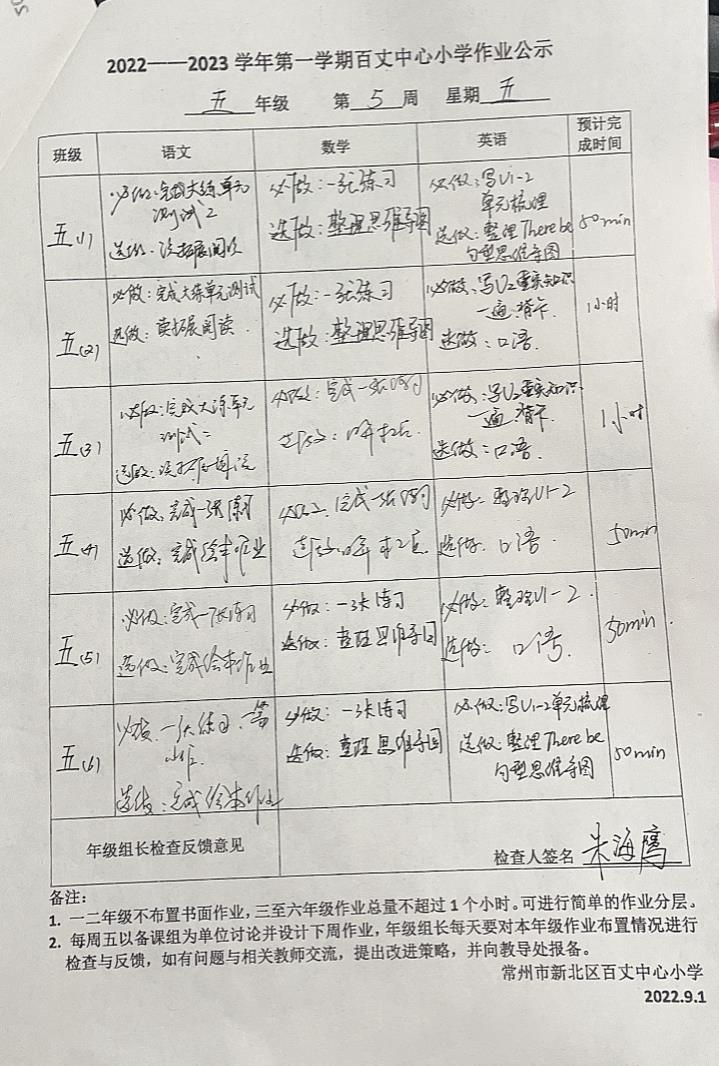 2022——2023学年第一学期百丈中心小学作业公示
五 年级 第 5 周 星期 五
班级 语文 数学 英语 预计完成时间
五(1)
必做:完成大练单元
测试2
选做:读拓展阅读
必做:一张练习
选做:整理思维导图
必做:写U1-2
单元梳理
选做:整理There be
句型思维导图
50min
五(2)
必做:完成大练单元测试
选做:读拓展阅读.
必做:一张练习
选做:整理思维导图
必做:写U2重点知识
一遍.背.
选做:口语.
1小时
五(3)
必做:完成大练单元
测试二
选做:读拓展阅读
必做:完成一张练习
选做:
必做:写U2重点知识
一遍.背.
选做:口语.
1小时
五(4)
必做:完成一张练习
选做:完成绘本作业
必做:完成一张练习
选做:
必做:整理U1-2
选做:口语.
50min
五(5)
必做:完成一张练习
选做:完成绘本作业
必做:一张练习
选做:整理思维导图
必做:整理U1-2.
选做:口语.
50min.
五(6)
必做:一张练习.
选做:完成绘本作业
必做:一张练习
选做:整理思维导图
必做:写U1-2单元梳理
选做:整理There be
句型思维导图
50min
年级组长检查反馈意见
检查人签名 朱海鹰
备注:
1. 一二年级不布置书面作业,三至六年级作业总量不超过1个小时。可进行简单的作业分层。
2. 每周五以备课组为单位讨论并设计下周作业,年级组长每天要对本年级作业布置情况进行
检查与反馈,如有问题与相关教师交流,提出改进策略,并向教导处报备。
常州市新北区百丈中心小学
2022.9.1